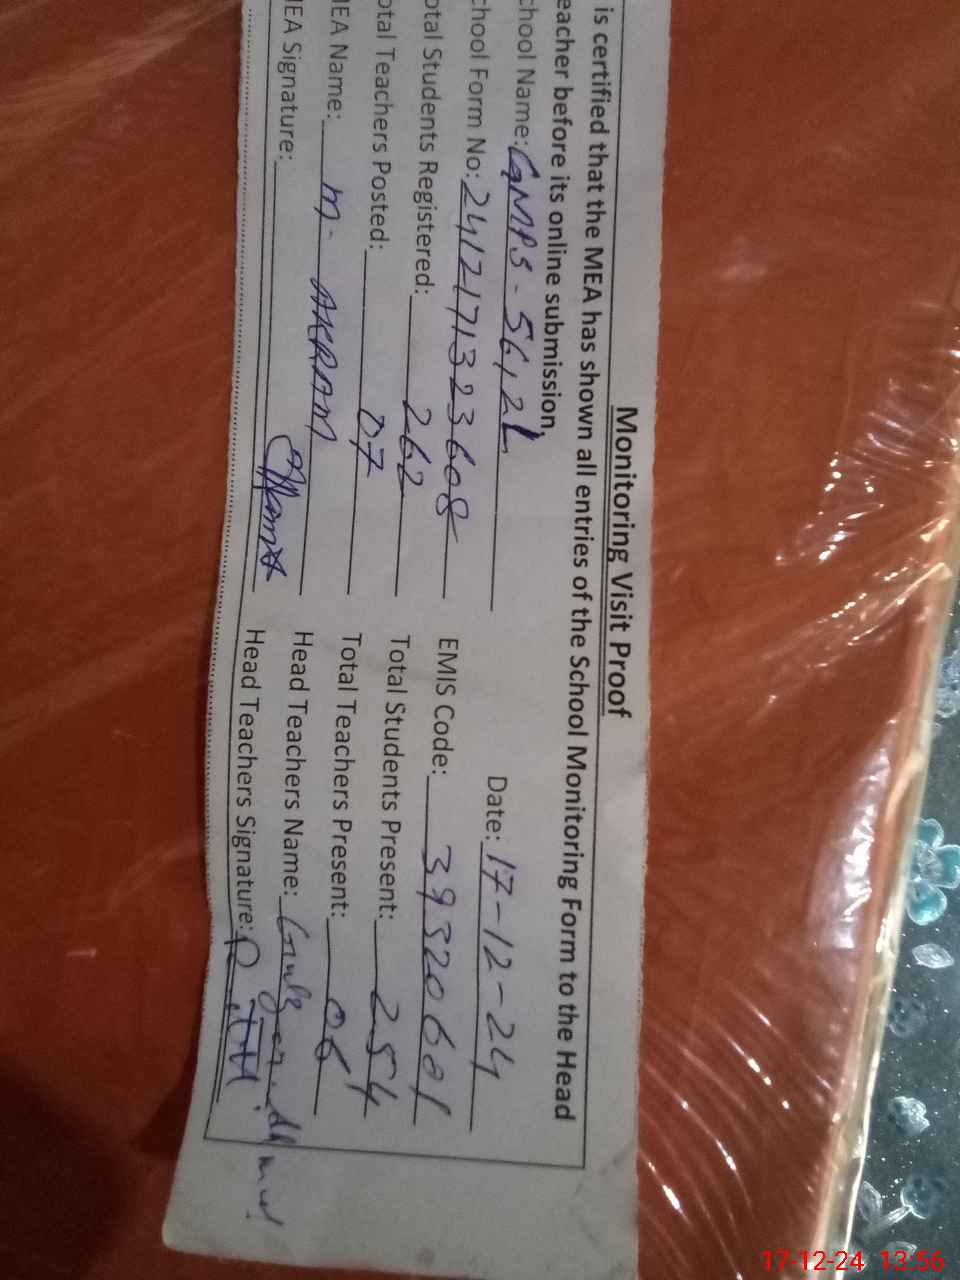 Monitoring Visit Proof
is certified that the MEA has shown all entries of the School Monitoring Form to the Head
eacher before its online submission.
chool Name: GMPS - 56/2L Date: 17-12-24
chool Form No: 2412171323608 EMIS Code: 39320601
otal Students Registered: 262 Total Students Present: 254
otal Teachers Posted: 07 Total Teachers Present: 06
IEA Name: M. AKRAM Head Teachers Name:
IEA Signature: Head Teachers Signature:
17-12-24 13:56